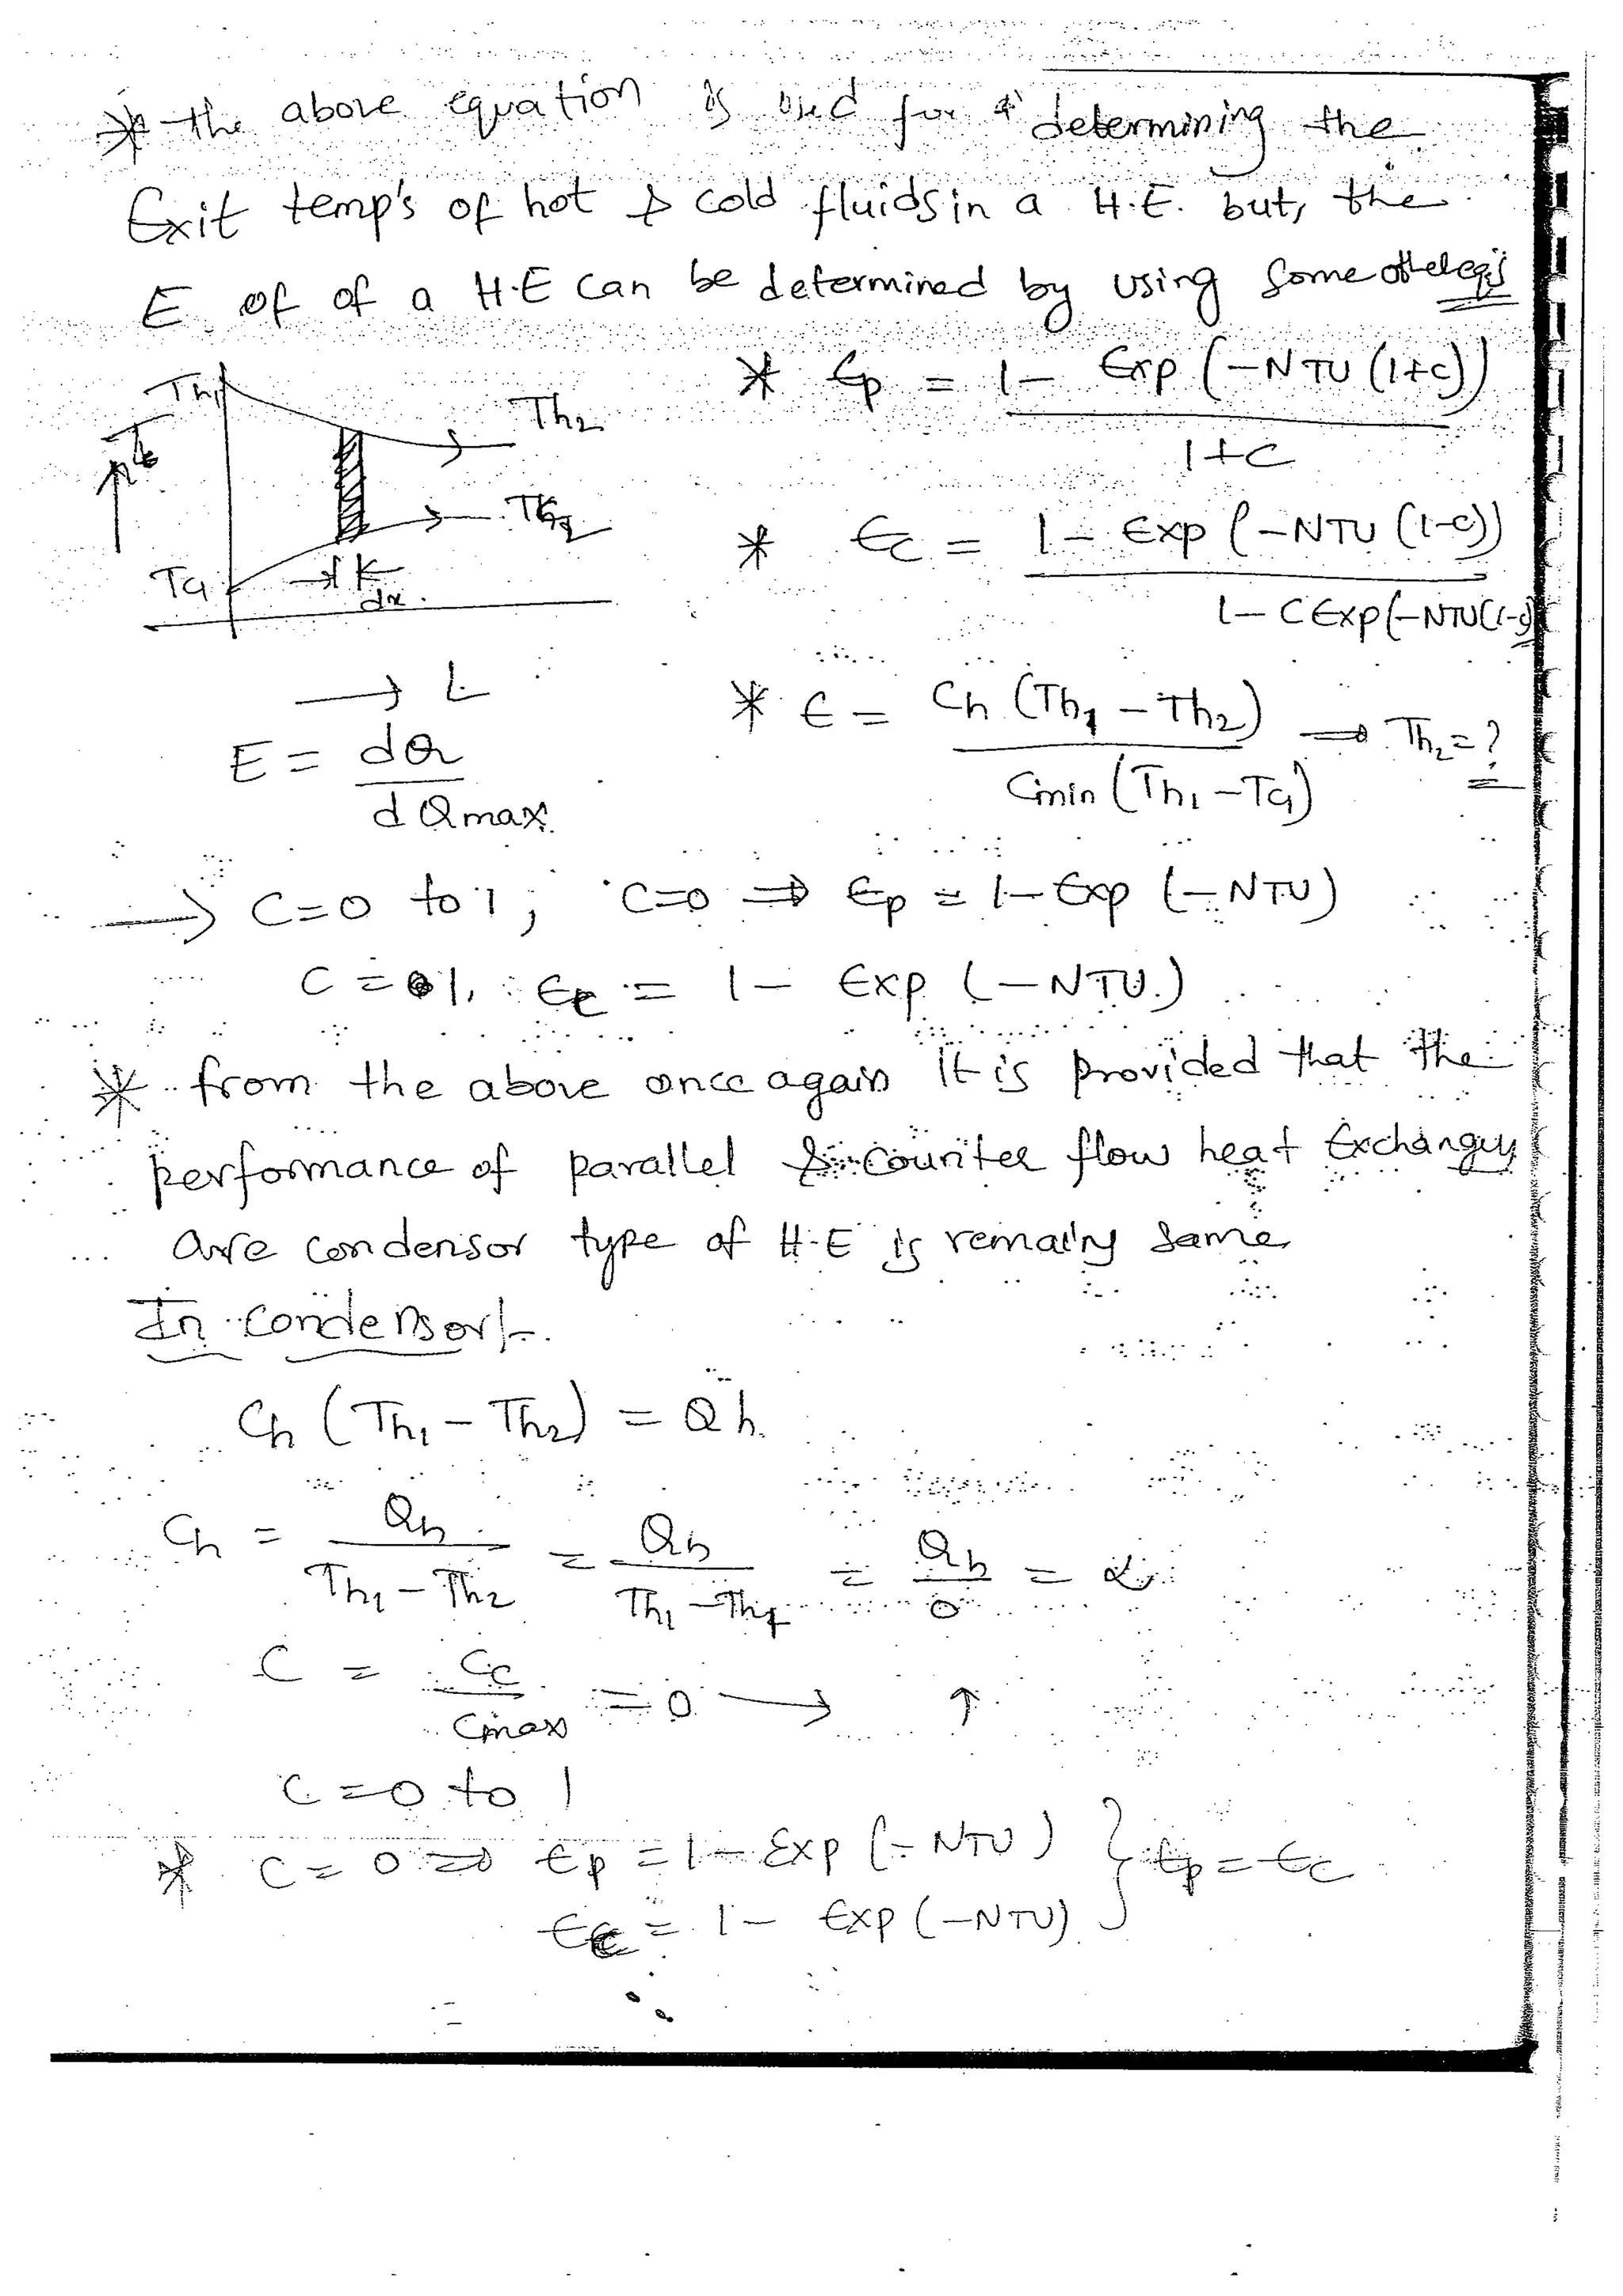 * the above equation is used for determining the
Exit temp's of hot & cold fluids in a H.E. but, the
E of of a H.E can be determined by using some other eq's
* Єp = 1 - Exp (-NTU (1+c)) / 1+c
Th1
Th2
* Єc = 1 - Exp (-NTU (1-c)) / 1 - C Exp (-NTU (1-c))
Tc1
dx.
→ L
* Є = Ch (Th1 - Th2) / Cmin (Th1 - Tc1) ⇒ Th2 = ?
E = dQ / dQmax
→ C=0 to 1; C=0 ⇒ Єp = 1 - Exp (-NTU)
C = 1, Єc = 1 - Exp (-NTU.)
* from the above once again It is provided that the
performance of parallel & counter flow heat Exchangers
are condensor type of H.E is remaing same
In condensor:-
Ch (Th1 - Th2) = Qh.
Ch = Qh / Th1 - Th2 = Qh / Th1 - Th1 = Qh / 0 = α
C = Cc / Cmax = 0 → ↑
C = 0 to 1
* C = 0 ⇒ Єp = 1 - Exp (-NTU) } Єp = Єc
Єc = 1 - Exp (-NTU)